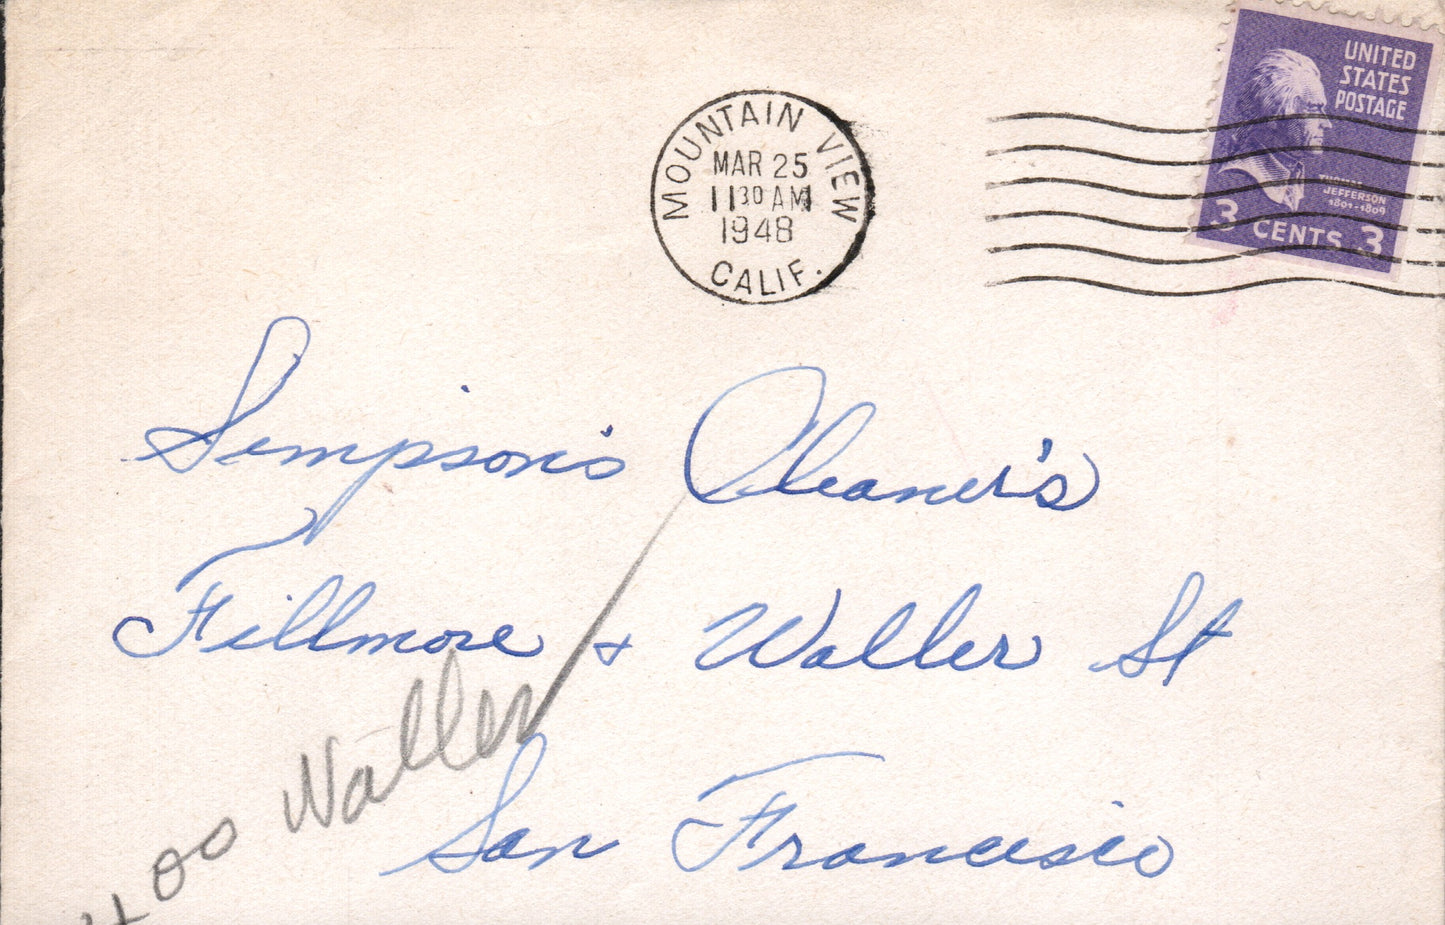 MOUNTAIN VIEW
MAR 25
11 30 AM
1948
CALIF.
UNITED
STATES
POSTAGE
THOMAS
JEFFERSON
1801-1809
3 CENTS 3
Simpson's Cleaner's
Fillmore + Waller St
San Francisco
400 Waller